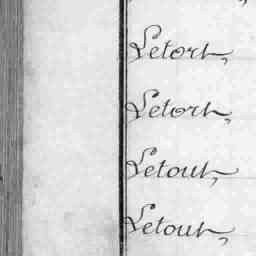 Letort,
Letort,
Letout,
Letout,